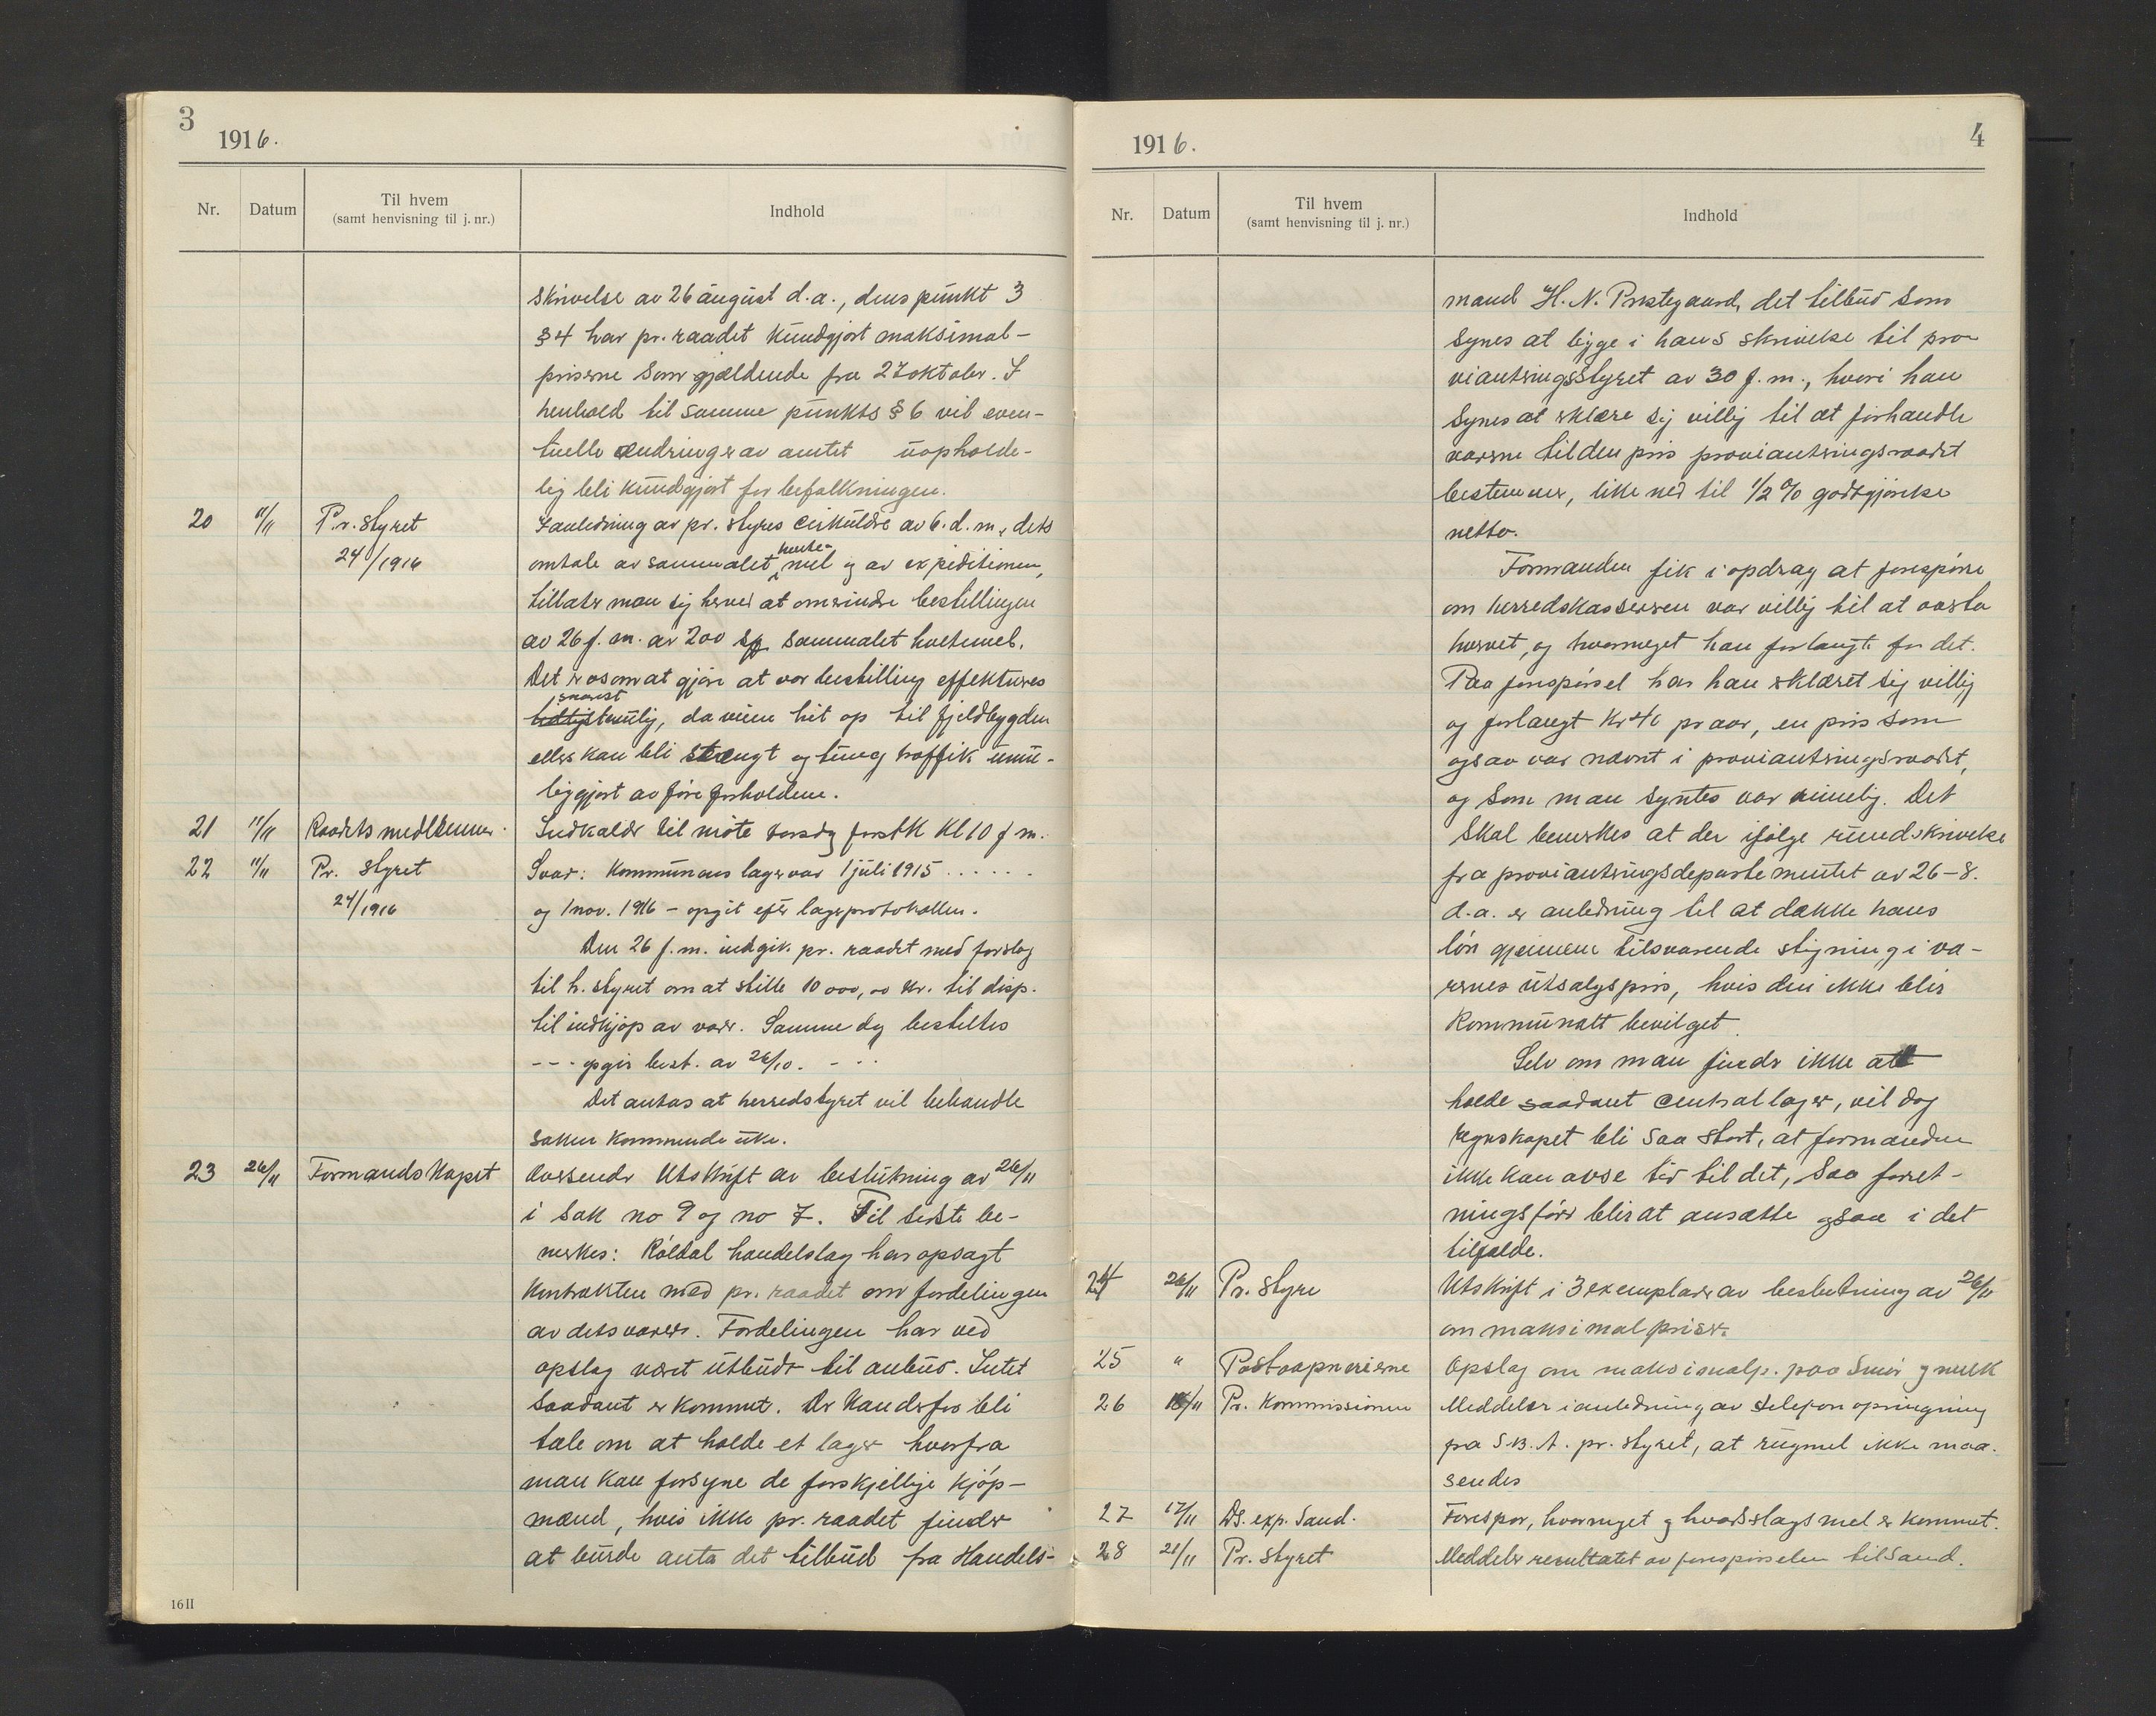 3
1916.
Nr.
Datum
Til hvem
(samt henvisning til j. nr.)
Indhold
skrivelse av 26 august d.a., dens punkt 3
§ 4 har pr. raadet kundgjort maksimal-
priserne som gjældende fra 27 oktober. I
henhold til samme punkts § 6 vil even-
tuelle ændringer av amtet uopholde-
lig bli kundgjort for befolkningen.
20 11/11 Pr. styret I anledning av pr. styres cirkulære av 6. d. m., dets
24/1916 omtale av sammalet hvete- mel og av expeditionen,
tillater man sig herved at omerindre bestillingen
av 26 f. m. av 200 sk sammalet hvetemel.
Det er os om at gjøre at vor bestilling effektueres
snarest
tidligst mulig, da veiene hit op til fjeldbygden
ellers kan bli stængt og tung traffik umu-
liggjort av føreforholdene.
21 11/11 Raadets medlemmer. Indkalder til møte torsdag førstk kl 10 f m.
22 11/11 Pr. styret Svar: Kommunens lager var 1 juli 1915 ......
24/1916 og 1 nov. 1916 – opgit efter lagerprotokollen.
Den 26 f. m. indgik pr. raadet med forslag
til h. styret om at stille 10 000,00 kr. til disp.
til indkjøp av varer. Samme dag bestiltes
--- opgir best. av 26/10. - - -
Det antas at herredstyret vil behandle
saken kommende uke.
23 26/11 Formandskapet Oversender utskrift av beslutning av 26/11
i sak no 9 og no 7. Til sidste be-
merkes: Røldal handelslag har opsagt
kontrakten med pr. raadet om fordelingen
av dets varer. Fordelingen har ved
opslag været utbudt til anbud. Intet
saadant er kommet. Der kan derfor bli
tale om at holde et lager hvorfra
man kan forsyne de forskjellige kjøp-
mænd, hvis ikke pr. raadet finder
at burde anta det tilbud fra Handels-
16 II
4
1916.
Nr.
Datum
Til hvem
(samt henvisning til j. nr.)
Indhold
mand H. N. Prestegaard, det tilbud som
synes at ligge i hans skrivelse til pro-
viantringsstyret av 30 f. m., hvori han
synes at erklære sig villig til at forhandle
varerne til den pris proviantringsraadet
bestemmer, like ned til 1/2 % godtgjørelse
netto.
Formanden fik i opdrag at forespørre
om herredskassereren var villig til at
hvervet, og hvormeget han forlangte for det.
Paa forespørsel har han erklæret sig villig
og forlangt Kr pr aar, en pris som
ogsaa var nævnt i proviantringsraadet,
og som man syntes var rimelig. Det
skal bemerkes at der ifølge rundskrivelse
fra proviantringsdepartementet av 26-8.
d.a. er anledning til at dække hans
løn gjennem tilsvarende stigning i va-
rernes utsalgspris, hvis den ikke blir
kommunalt bevilget.
Selv om man finder ikke at
holde saadant centrallager, vil dog
regnskapet bli saa stort, at formanden
ikke kan avse tid til det, saa forret-
ningsfører blir at ansætte ogsaa i det
tilfælde.
24 26/11 Pr. styre Utskrift i 3 exemplarer av beslutning av 26/11
om maksimalpriser.
25 " Postaapnerierne Opslag om maksimalp. paa smør og melk
26 16/11 Pr. Kommissionen Meddeler i anledning av telefonopringning
fra S.B.A. pr. styret, at rugmel ikke maa
sendes
27 17/11 Ds. exp. Sand. Forespør, hvormeget og hvadslags mel er kommet.
28 21/11 Pr. styret Meddeler resultatet av forespørselen til Sand.